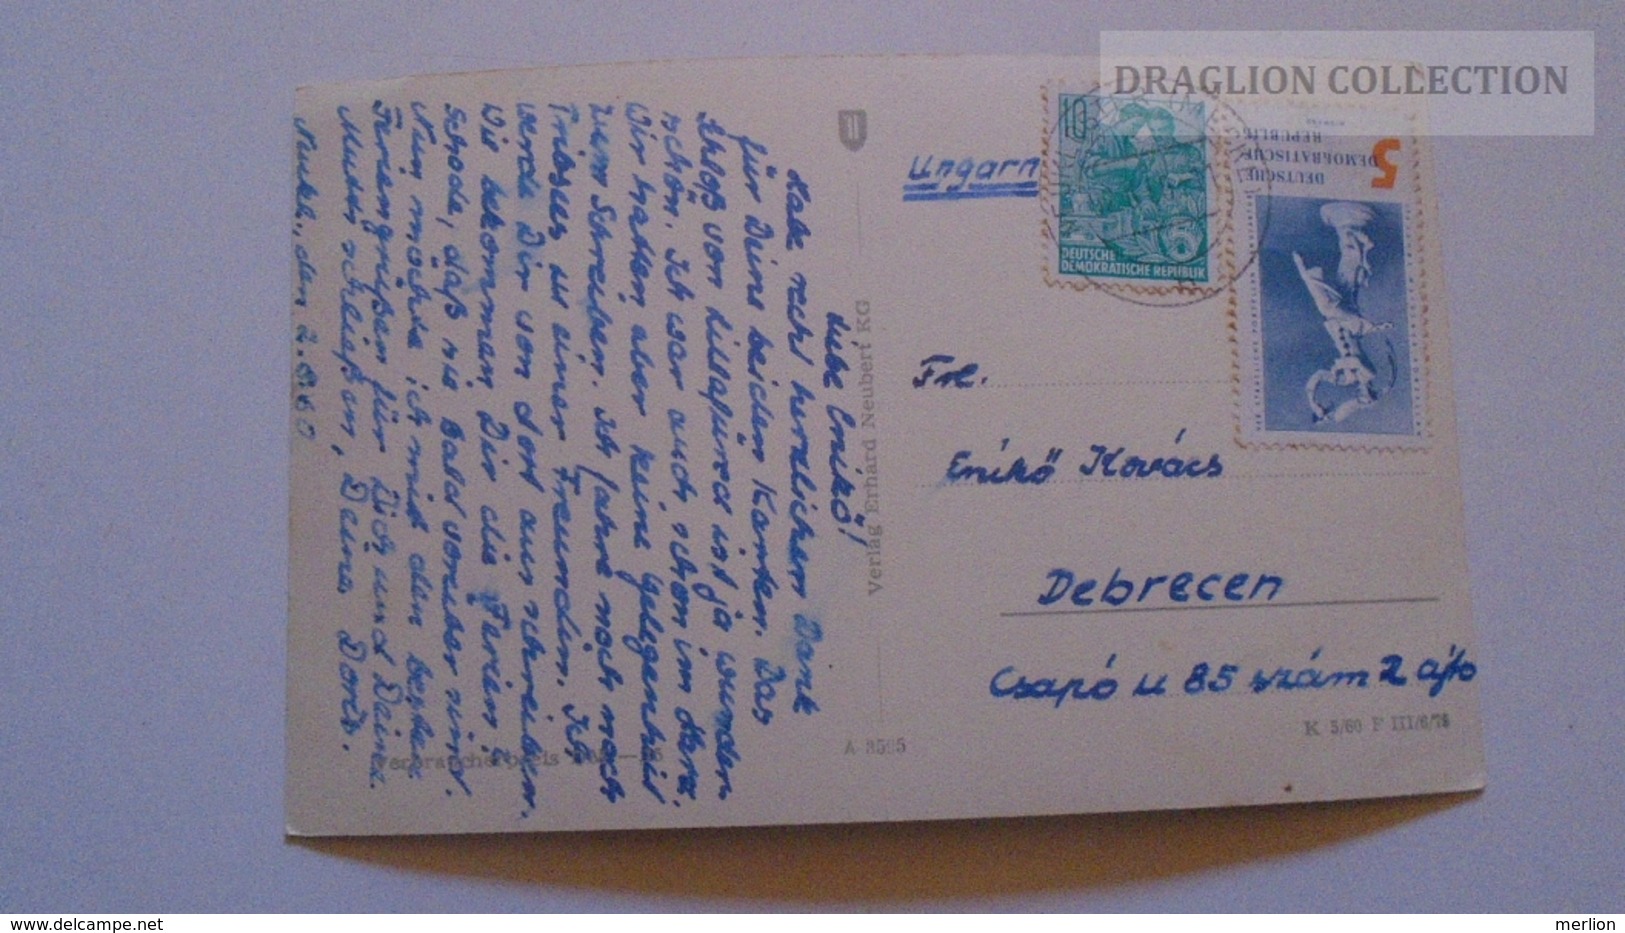 DRAGLION COLLECTION
Liebe Enikö!
Habe recht herzlichen Dank
für Deine beiden Karten. Das
Schloß von Lillafüred ist ja wunder-
schön. Ich war auch schon im Harz.
Wir hatten aber keine Gelegenheit
zum Schreiben. Ich fahre noch nach
Tribses zu einer Freundin. Ich
werde Dir von dort aus schreiben.
Wie bekommen Dir die Ferien?
Schade, daß sie bald vorüber sind.
Nun möchte ich mit den besten
Feriengrüßen für Dich und Deine
Mutti schließen, Deine Doris.
den 2.8.60
Verlag Erhard Neubert KG
A 3595
Ungarn
10
DEUTSCHE
DEMOKRATISCHE REPUBLIK
5
DEUTSCHE
DEMOKRATISCHE
REPUBLIK
Frl.
Enikő Kovács
Debrecen
Csapó u 85 szám 2 ajtó
K 5/60 F III/6/78
merlion